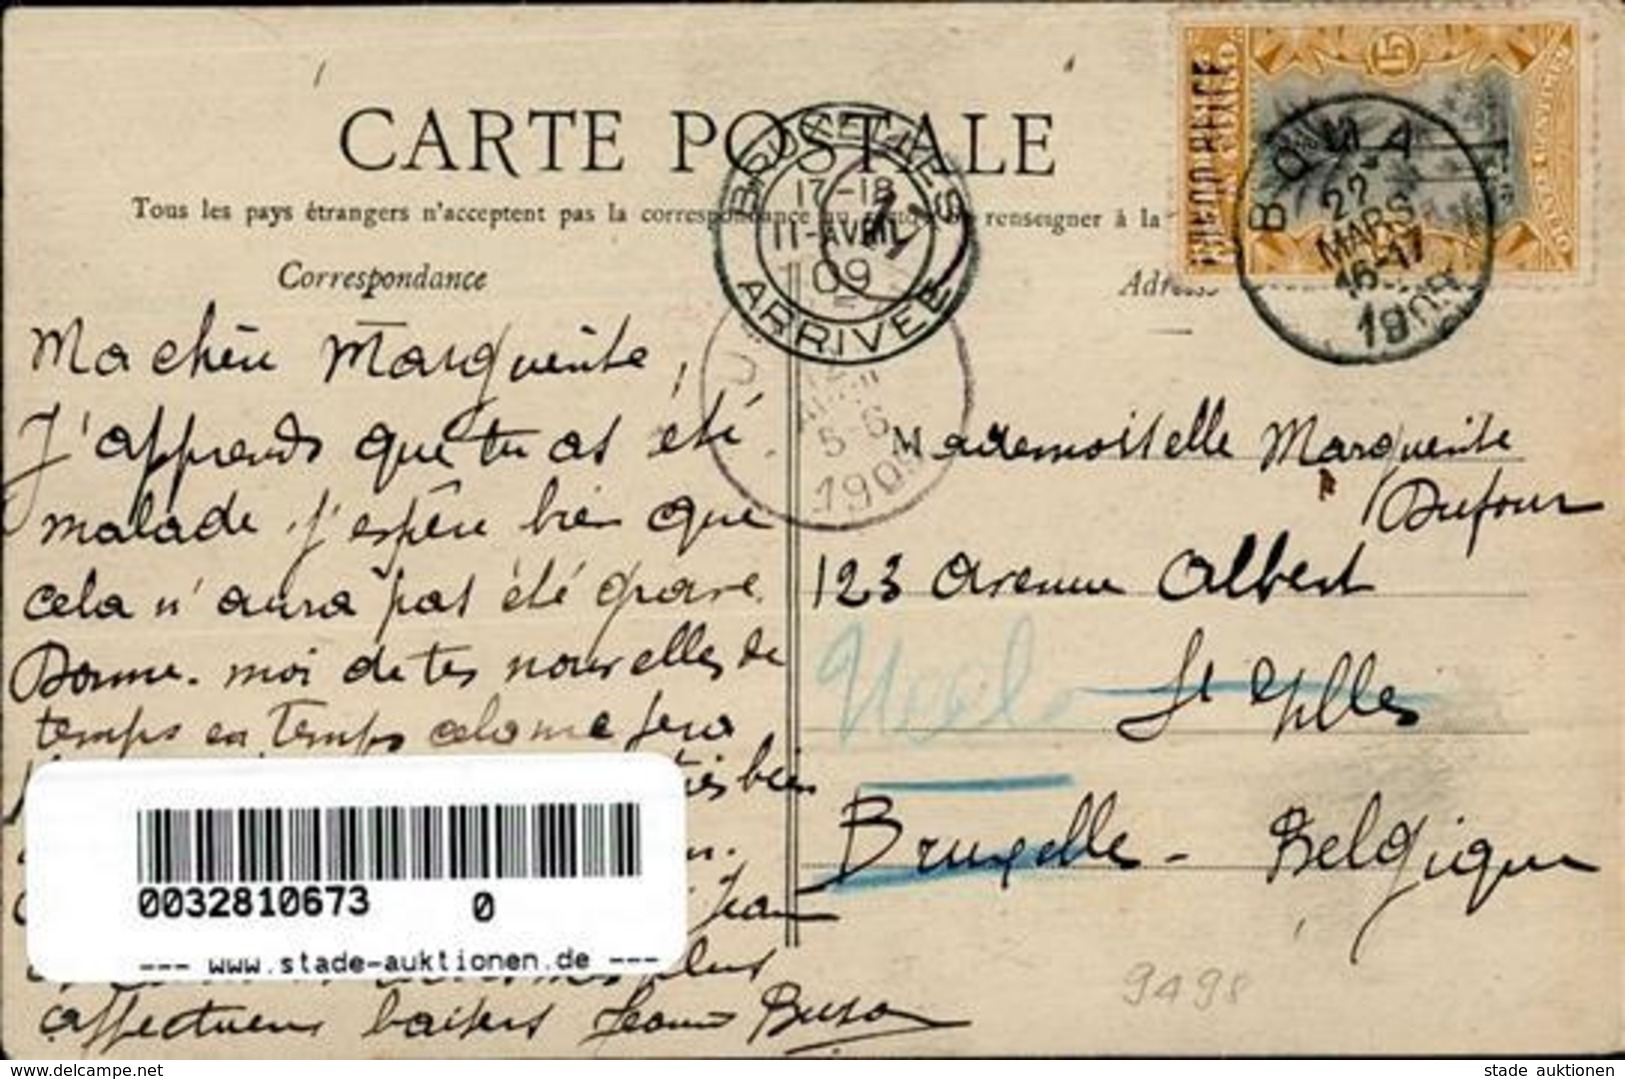 CARTE POSTALE
Tous les pays étrangers n'acceptent pas la correspondance au renseigner à la
Correspondance
Adresse
BRUXELLES
17-18
11-AVRIL
09
ARRIVEE
1
BOMA
22
MARS
16-17
1909
15
5-6
1909
Ma chère Marguerite,
J'apprends que tu as été
malade, j'espère bien que
cela n'aura pas été grave.
Donne-moi de tes nouvelles de
temps en temps cela me fera
très bien
Jean
plus
affectueux baisers
Mademoiselle Marguerite
Dufour
123 Avenue Albert
St Gilles
Uccle
Bruxelles - Belgique
9498
0032810673 0
--- www.stade-auktionen.de ---
www.delcampe.net
stade auktionen